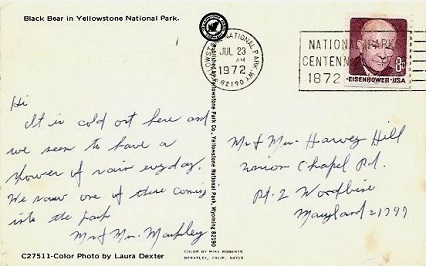 Black Bear in Yellowstone National Park.
YELLOWSTONE NATIONAL PARK, WY
JUL 23
AM
1972
82190
NATIONAL PARK
CENTENNIAL
1872
8¢
EISENHOWER·USA
Hi
It is cold out here and
we seem to have a
shower of rain everyday.
We saw one of these coming
into the park
Mr & Mrs.
Mr & Mrs. Harvey Hill
Union Chapel Rd.
Rt. 2 Woodbine
Maryland 21797
Published by Yellowstone Park Co. Yellowstone National Park, Wyoming 82190
C27511-Color Photo by Laura Dexter
COLOR BY MIKE ROBERTS
BERKELEY, CALIF. 94710